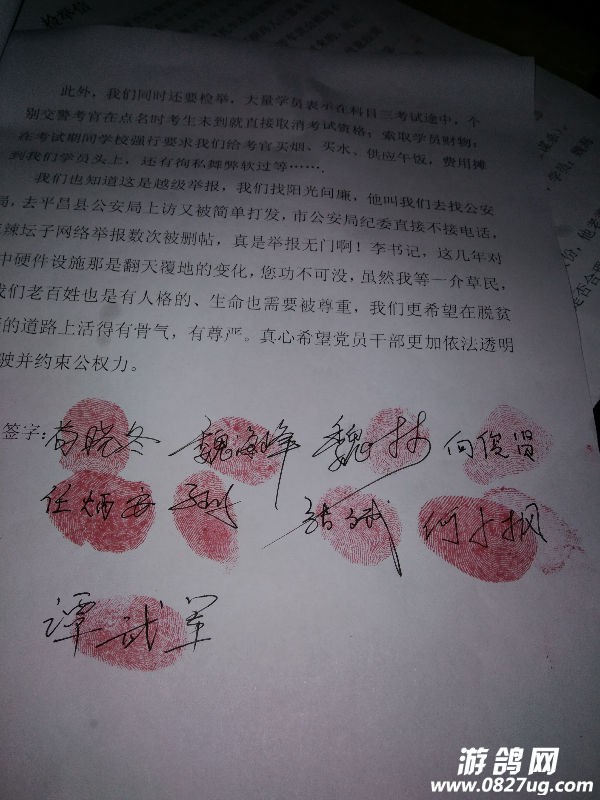 检举信
此外，我们同时还要检举，大量学员表示在科目三考试途中，个
别交警考官在点名时考生未到就直接取消考试资格；索取学员财物；
在考试期间学校强行要求我们给考官买烟、买水、供应午饭，费用摊
到我们学员头上，还有徇私舞弊软过等……。
我们也知道这是越级举报，我们找阳光问廉，他叫我们去找公安
局，去平昌县公安局上访又被简单打发，市公安局纪委直接不接电话，
辣坛子网络举报数次被删帖，真是举报无门啊！李书记，这几年对
中硬件设施那是翻天覆地的变化，您功不可没，虽然我等一介草民，
我们老百姓也是有人格的、生命也需要被尊重，我们更希望在脱贫
的道路上活得有骨气，有尊严。真心希望党员干部更加依法透明
驶并约束公权力。
签字：
魏 向俊贤
任炳安
张斌
谭武军
游鸽网
www.0827ug.com